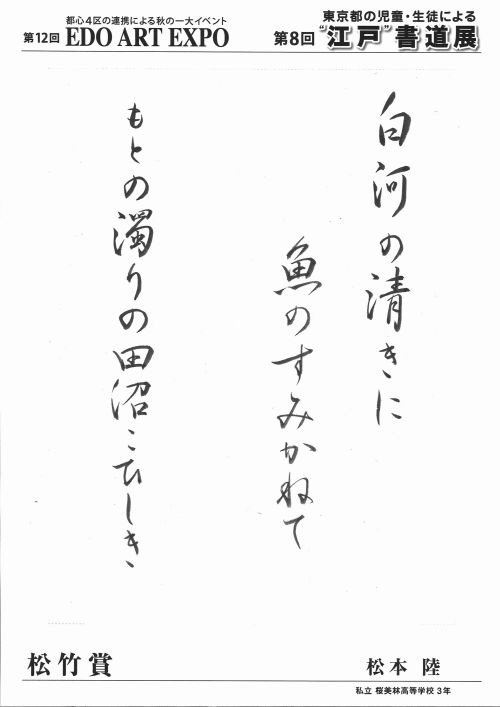 都心4区の連携による秋の一大イベント
第12回 EDO ART EXPO
東京都の児童・生徒による
第8回 "江戸"書道展
白河の清きに
魚のすみかねて
もとの濁りの田沼こひしき
松竹賞
松本 陸
私立 桜美林高等学校 3年